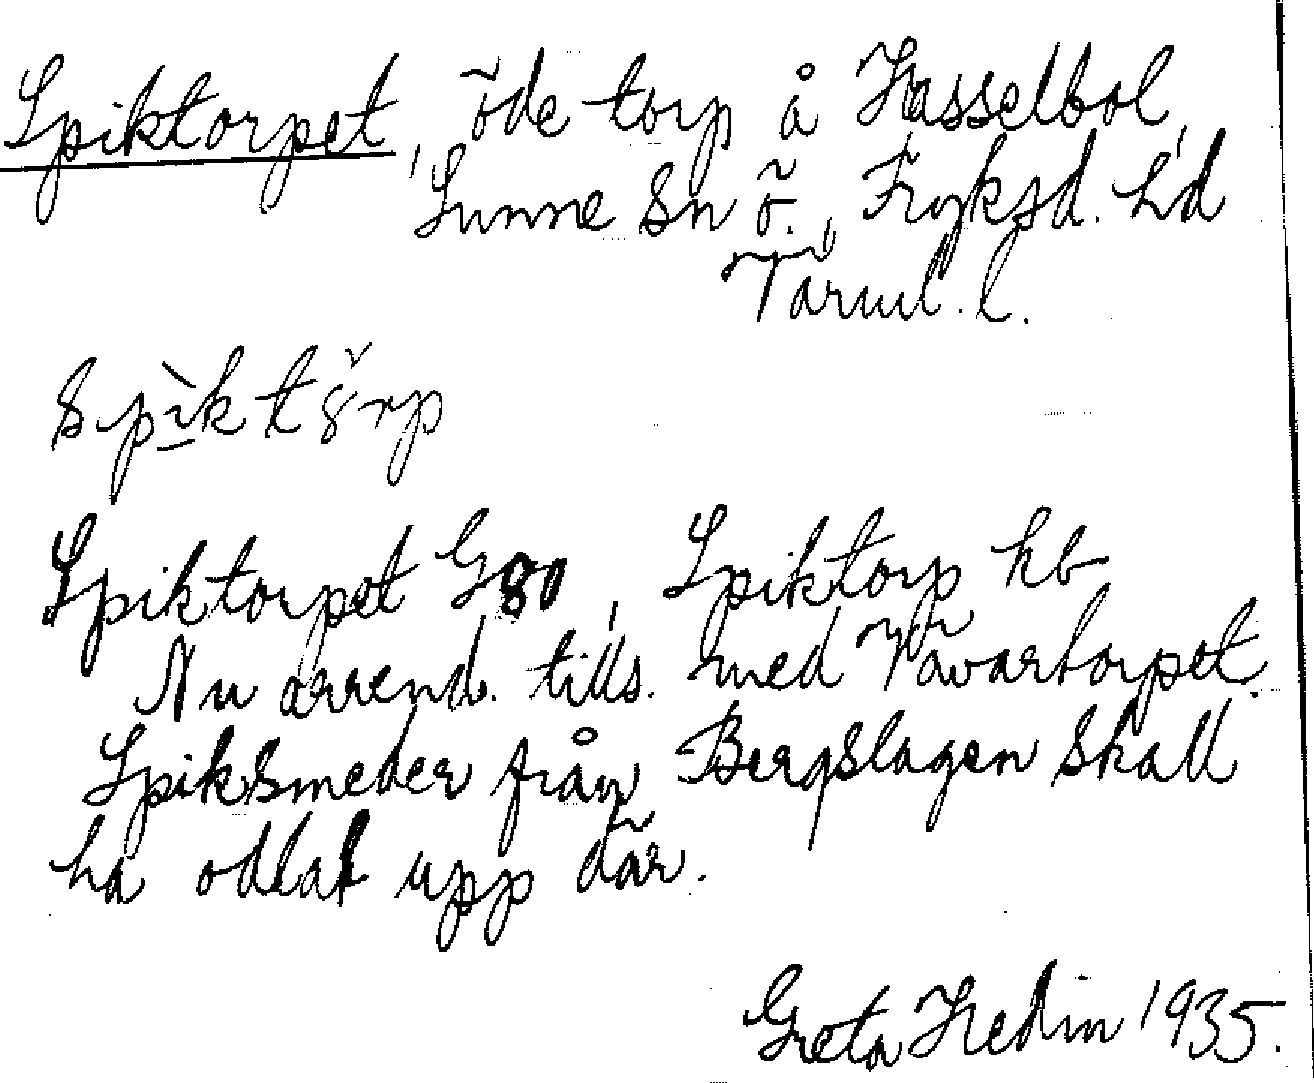 Spiktorpet, öde torp å Hasselbol,
Sunne sn ö., Fryksd. hd
Värml. l.
Spiktorpet G80, Spiktorp hb
Nu arrend. tills. med Vävartorpet.
Spiksmeder från Bergslagen skall
ha odlat upp där.
Greta Hedin 1935.